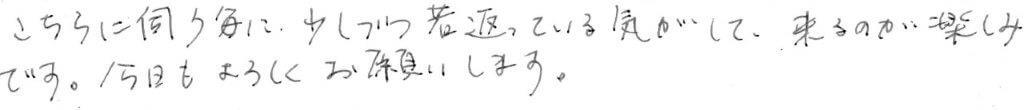 こちらに伺う毎に、少しづつ若返っている気がして、来るのが楽しみ
です。今日もよろしくお願いします。